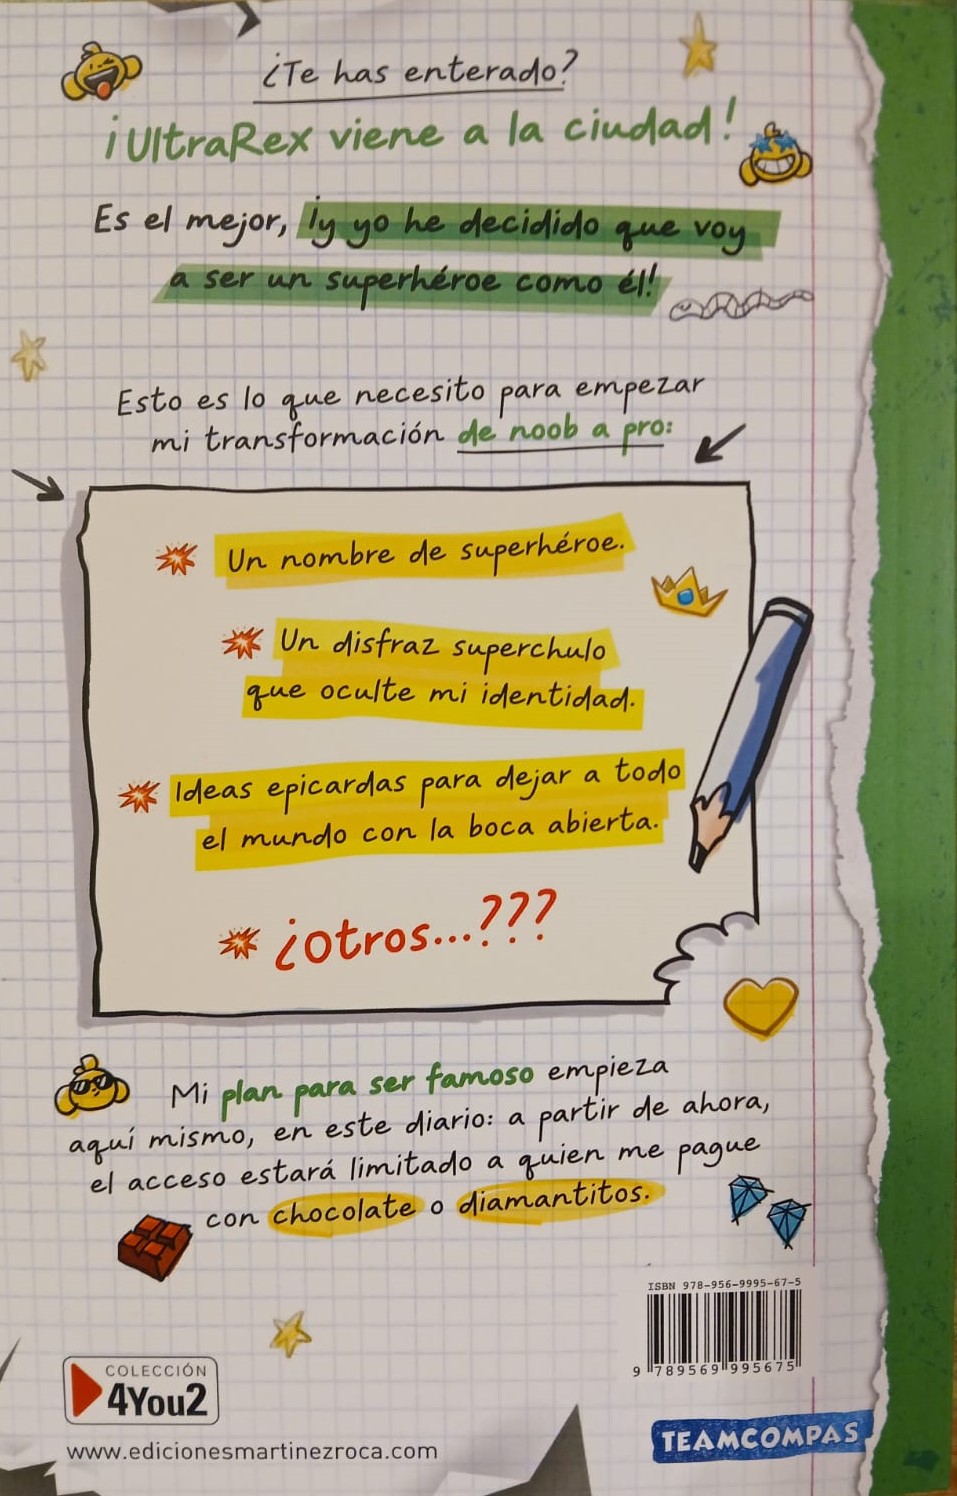 ¿Te has enterado?
¡UltraRex viene a la ciudad!
Es el mejor, ¡y yo he decidido que voy
a ser un superhéroe como él!
Esto es lo que necesito para empezar
mi transformación de noob a pro:
Un nombre de superhéroe.
Un disfraz superchulo
que oculte mi identidad.
Ideas epicardas para dejar a todo
el mundo con la boca abierta.
¿Otros...???
Mi plan para ser famoso empieza
aquí mismo, en este diario: a partir de ahora,
el acceso estará limitado a quien me pague
con chocolate o diamantitos.
ISBN 978-956-9995-67-5
9 789569 995675
COLECCIÓN
4You2
www.edicionesmartinezroca.com
TEAMCOMPAS